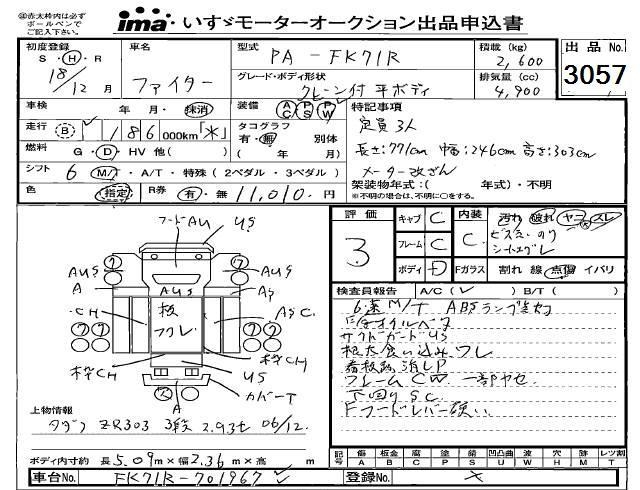 ㊟赤太枠内は必ず
ボールペンで
ご記入下さい。
ima いすゞモーターオークション出品申込書
初度登録 車名 型式 PA-FK71R 積載 (kg) 2,600 出品 No.
S・H・R 18/12月 ファイター グレード・ボディ形状 クレーン付 平ボディ 排気量 (cc) 4,900 3057
車検 年 月・抹消 装備 AC PS PW 特記事項
走行 B 186 000km「※」 タコグラフ 有・無 別体 定員 3人
燃料 G・D・HV 他( ) ( 年 月) 長さ:771cm 幅:246cm 高さ:303cm
シフト 6 M/T・A/T・特殊(2ペダル・3ペダル) メーター改ざん
色 指定 R券 有・無 11,010.円 架装物年式:( 年式)・不明
※不明の場合は、不明に○をする。
評価 3 キャブ C 内装 C 汚れ 破れ ヤニ スレ
フレーム C ビス穴 のり
シートスグレ
ボディ D Fガラス 割れ 線 点傷 イバリ
検査員報告 A/C(レ) B/T( )
6速M/T ABSランプ点灯
サイドガード US
フレーム CW 一部ヤセ
下回り S.C.
Fフードレバー硬い
フードAU US
AUS AUS AUS
A A AS
CH 板 フクレ ASC.
枠CH US 枠CH
カバーT
A
上物情報
タダノ ZR303 3段 2.93t 06/12.
ボディ内寸約 長 5.09m×幅 2.36m×高 m
記号 傷 A 板金 B 腐 C 塗 P 錆 S 凹凸曲 U 波 W 穴 H 跡 M レツ割 T
車台No. FK71R-701967 登録No.